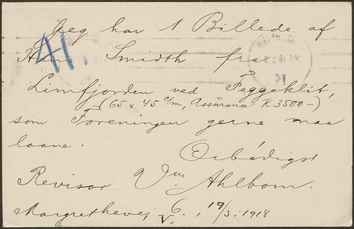 Jeg har 1 Billede af
41.
Hans Smidth fra
Limfjorden ved Feggeklit,
(65 x 45 c/m, Assurance K. 3500-)
som Foreningen gerne maa
laane.
Ærbødigst
Revisor Vm Ahlbom.
Margrethevej 6. 19/3. 1918
V.